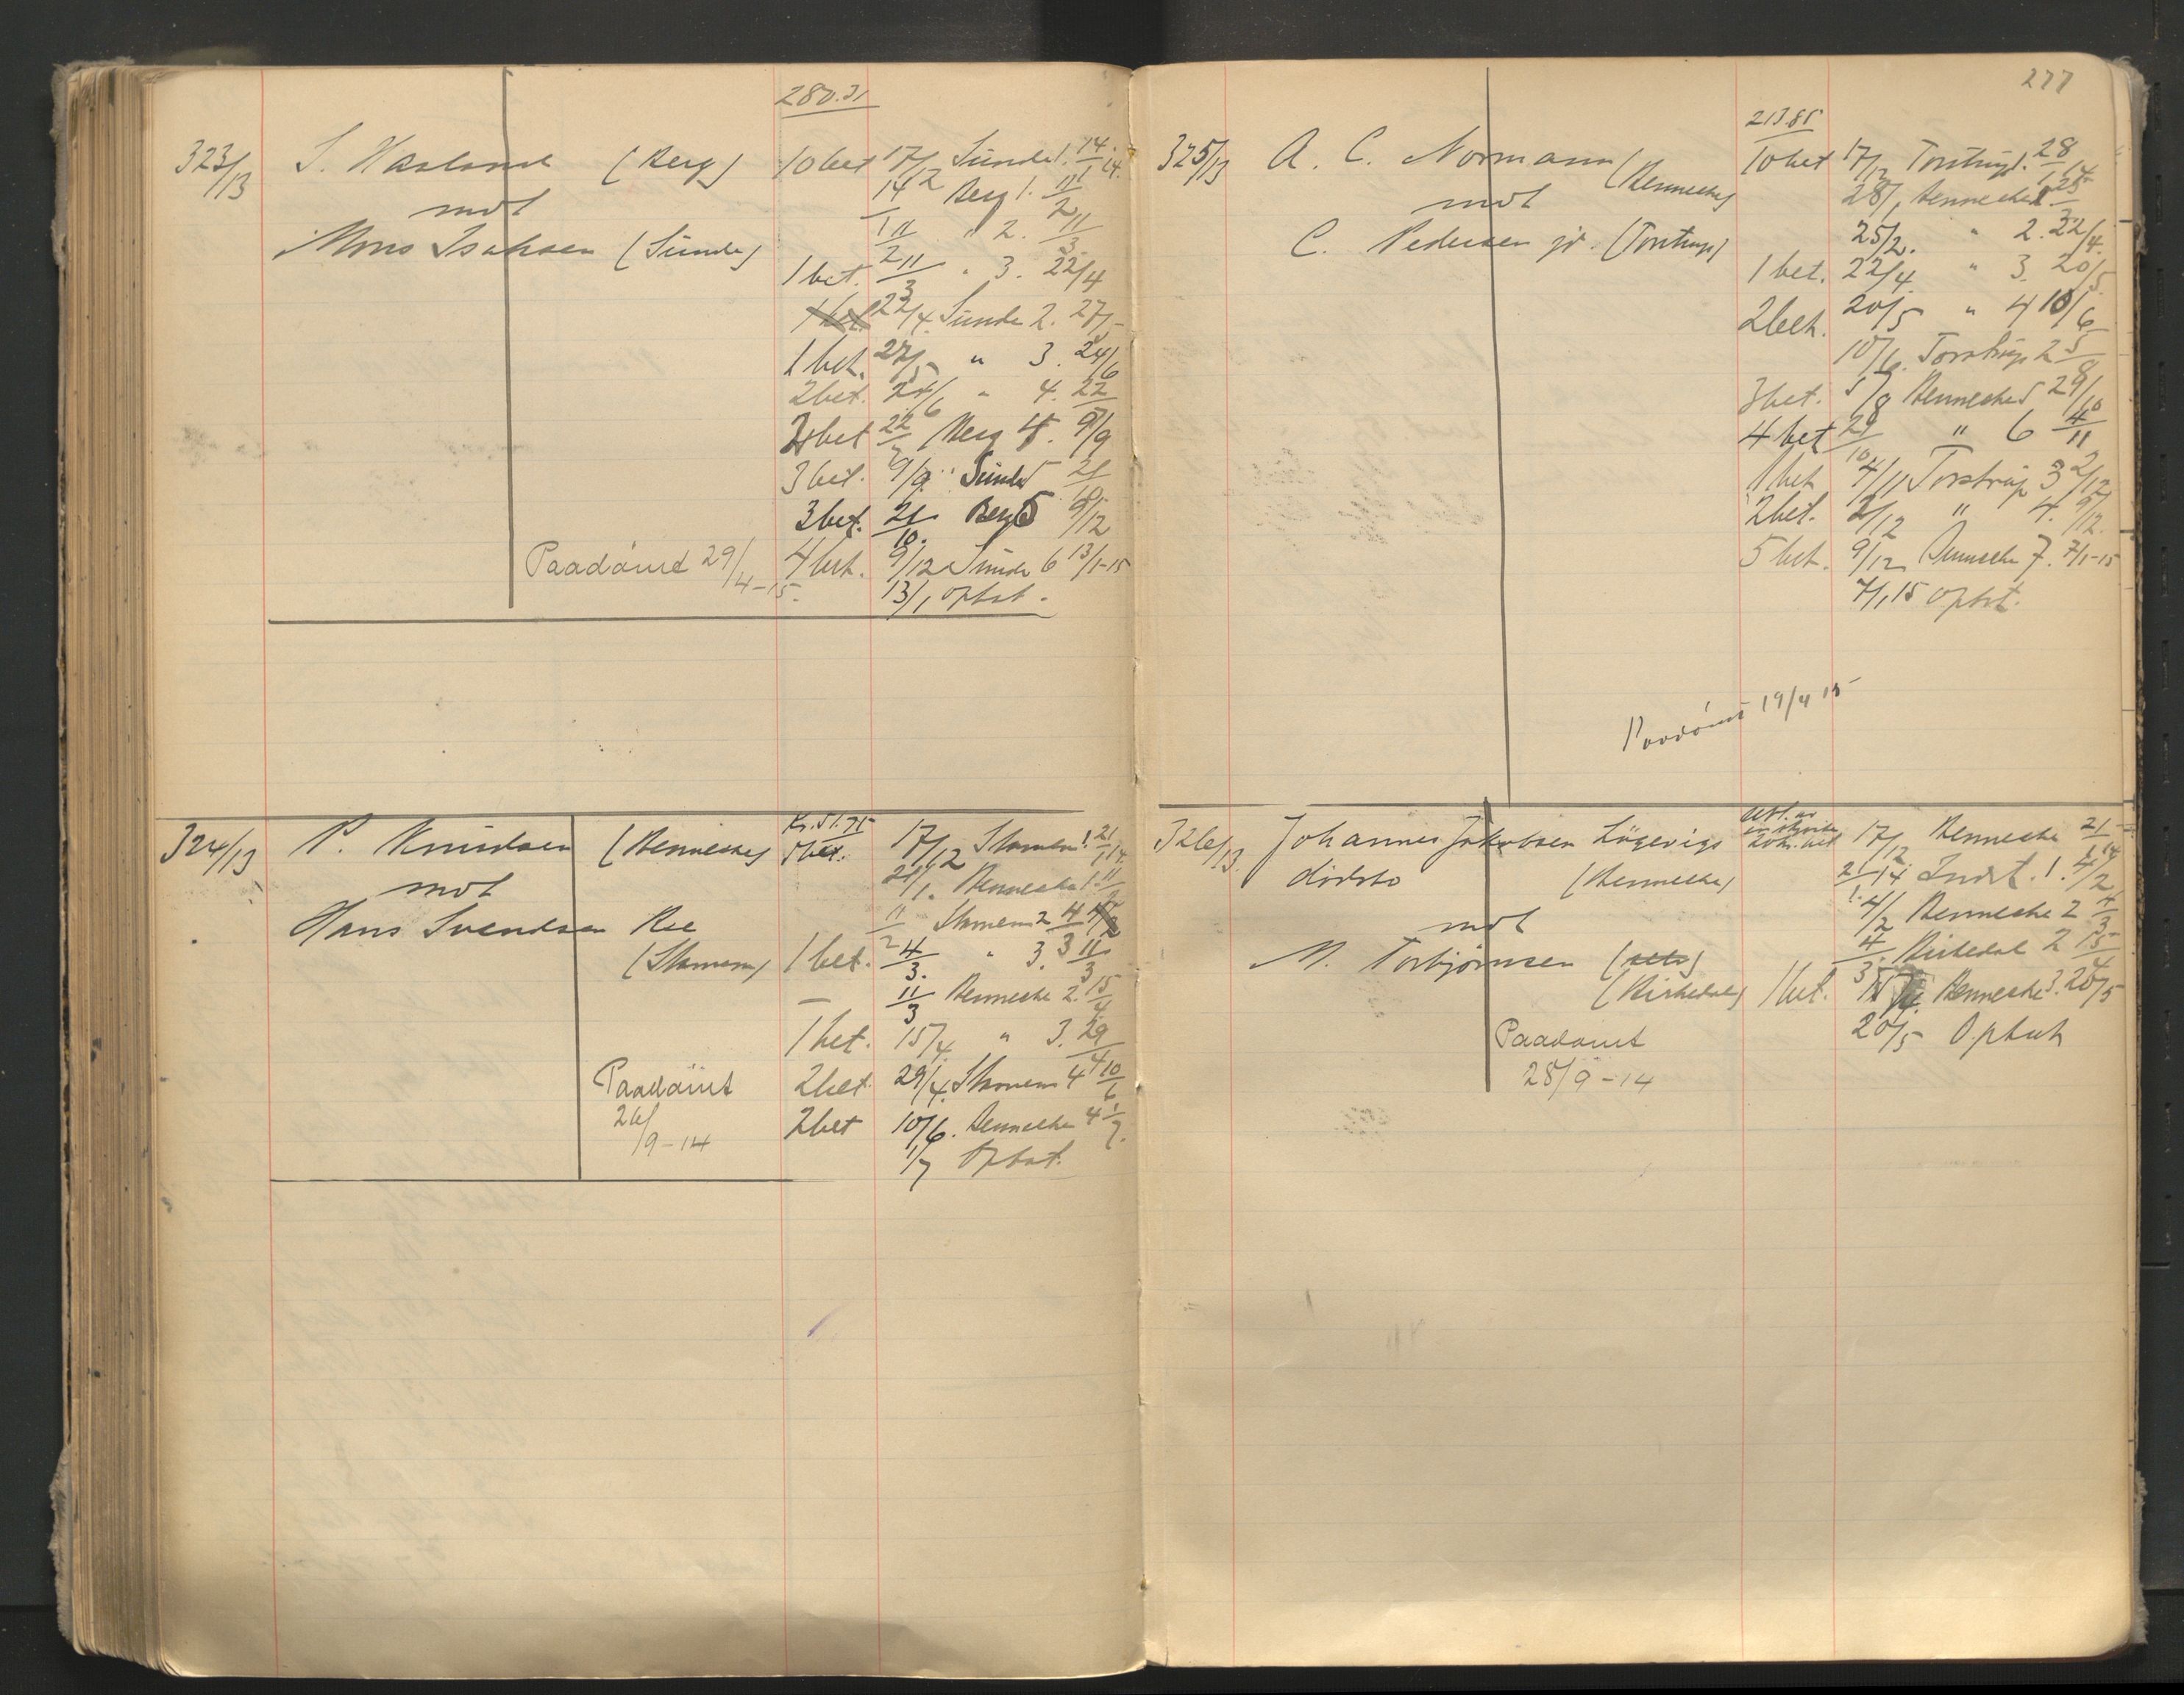 280.31
323/13 S. Haaland (Berg) 10 bet 17/12 Sunde 1. 14/1 14.
mot 14/1 Berg 1. 11/2
Mons Isaksen (Sunde) 11/2 " 2. 11/3
1 bet. 11/3 " 3. 22/4
1 bet. 22/4 Sunde 2. 27/5
1 bet. 27/5 " 3. 24/6
2 bet. 24/6 " 4. 22/7
2 bet 22/7 Berg 4. 9/9
3 bet. 9/9 Sunde 5 21/10
3 bet. 21/10. Berg 5 9/12
Paadömt 29/4-15. 4 bet. 9/12 Sunde 6 13/1-15
13/1 Optat.
324/13 P. Knudsen (Bennesche) Kr. 51.75 5 bet. 17/12 Stamem 1. 21/1 14.
mot 21/1. Bennesche 1. 11/2
Hans Svendsen Ree 11/2 Stamem 2 4/3
(Stamem) 1 bet. 4/3. " 3. 11/3
11/3 Bennesche 2. 15/4
1 bet. 15/4. " 3. 29/4
Paadömt 2 bet. 29/4. Stamem 4 10/6
26/9-14 2 bet 10/6. Bennesche 4 1/7.
1/7 Optat.
277
213.85
325/13 A. C. Normann (Bennesche) 10 bet 17/12 Torstrup 1. 28/1 14
mot 28/1 Bennesche 1. 25/2
C. Pedersen jr. (Torstrup) 25/2. " 2. 22/4.
1 bet. 22/4. " 3. 20/5.
2 bet. 20/5 " 4 10/6
10/6. Torstrup 2 5/8
3 bet. 5/8 Bennesche 5 29/10
4 bet 29/10 " 6 4/11
1 bet 4/11 Torstrup 3 2/12
2 bet. 2/12 " 4. 9/12.
5 bet. 9/12 Bennesche 7. 7/1-15
7/1 15 Optat.
Paadömt 19/4 15
326/13. Johannes Jakobsen Lögevigs 20 kr. bet 17/12 Bennesche 21/1 14
dödsbo (Bennesche) 21/1. 14. Indst. 1. 4/2
mot 4/2 Bennesche 2 4/3
M. Torbjörnsen 4/3 Birkedal 2 15/4
(Birkedal) 1 bet. 15/4 Bennesche 3. 20/5
Paadömt 20/5 Optat
28/9-14